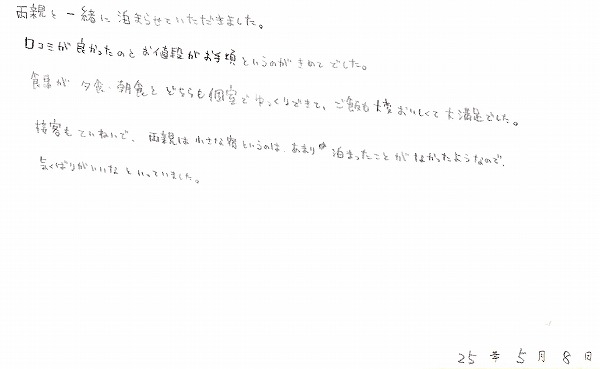 両親と一緒に泊まらせていただきました。
口コミが良かったのとお値段がお手頃というのがきめてでした。
食事が夕食・朝食とどちらも個室でゆっくりできて、ご飯も大変おいしくて大満足でした。
接客もていねいで、両親は小さな宿というのは、あまり泊まったことがなかったようなので、
気くばりがいいなといっていました。
25年5月8日